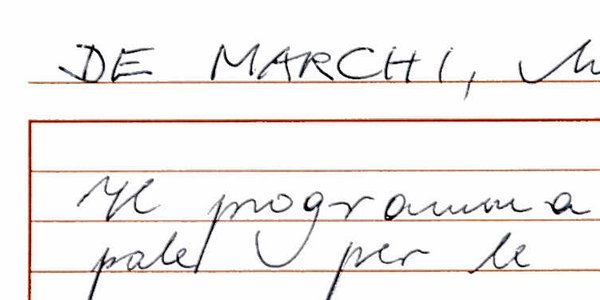 DE MARCHI,
Il programma
per le